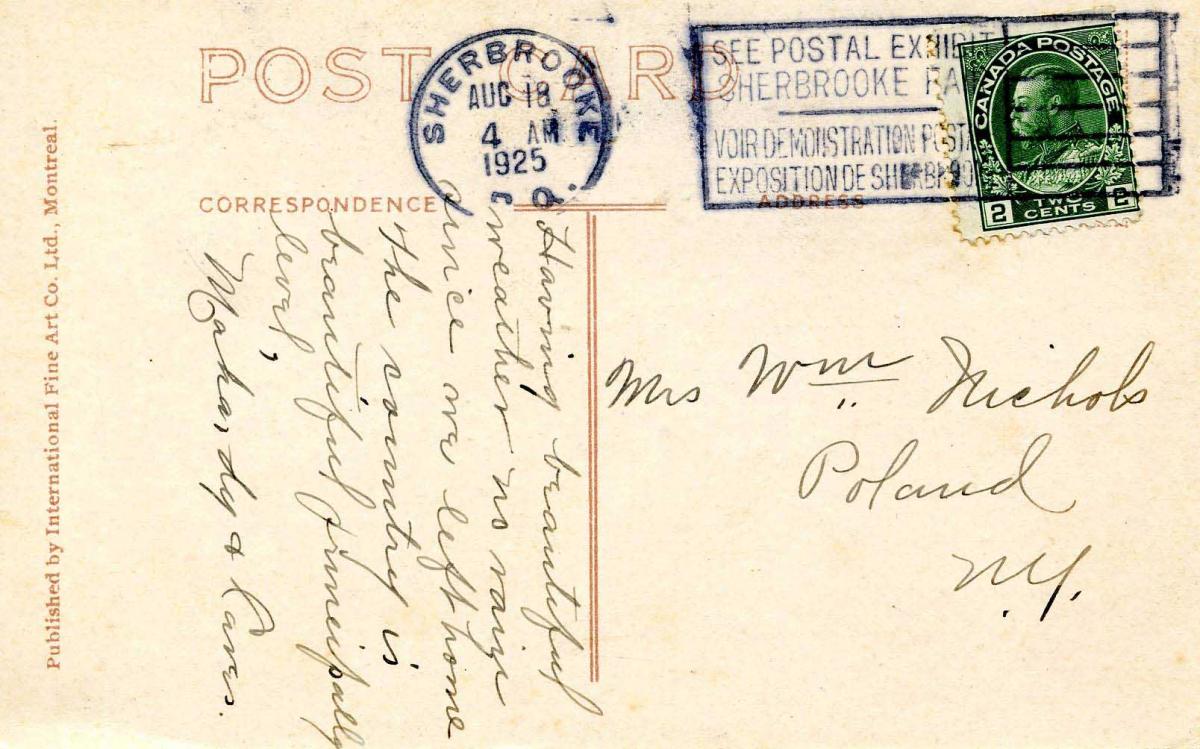 POST CARD
SHERBROOKE
AUG 18
4 AM
1925
P.Q.
SEE POSTAL EXHIBIT
SHERBROOKE FA
VOIR DEMONSTRATION POSTA
EXPOSITION DE SHERBROO
CANADA POSTAGE
2 TWO CENTS 2
CORRESPONDENCE
ADDRESS
Having beautiful
weather no rain
since we left home
The country is
beautiful principally
level,
Mrs Wm Nichols
Poland
N.Y.
Published by International Fine Art Co. Ltd., Montreal.